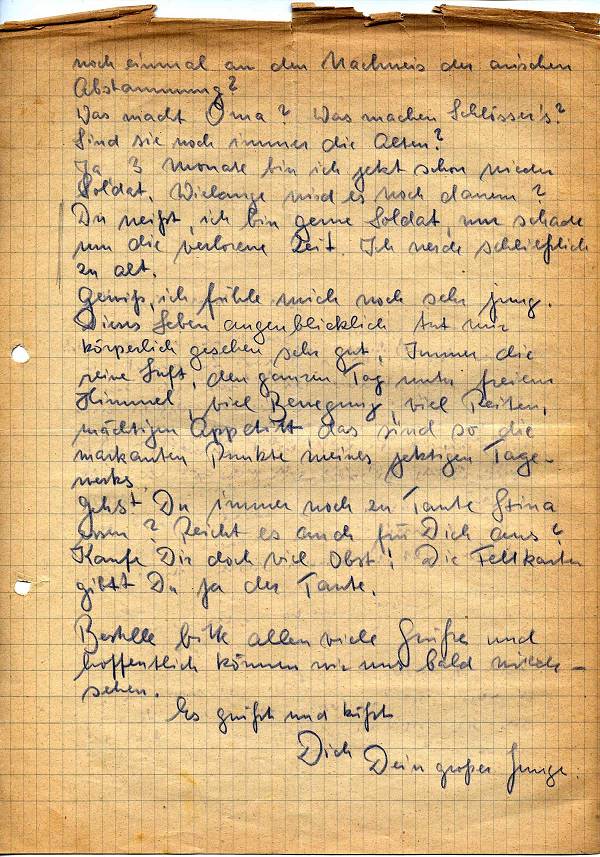 noch einmal an den Nachweis der arischen
Abstammung?
Was macht Oma? Was machen Schlösser's?
Sind sie noch immer die Alten?
Ja, 3 Monate bin ich jetzt schon wieder
Soldat. Wielange wird es noch dauern?
Du weißt, ich bin gerne Soldat, nur schade
um die verlorene Zeit. Ich werde schließlich
zu alt.
Gewiß, ich fühle mich noch sehr jung.
Dieses Leben augenblicklich tut mir
körperlich gesehen sehr gut. Immer die
reine Luft, den ganzen Tag unter freiem
Himmel, viel Bewegung, viel Reiten,
mächtigen Appetitt, das sind so die
markanten Punkte meines jetzigen Tage-
werks.
Gehst Du immer noch zu Tante Stina
essen? Reicht es auch für Dich aus?
Kaufe Dir doch viel Obst. Die Fettkarten
gibst Du ja der Tante.
Bestelle bitte allen viele Grüße und
hoffentlich können wir uns bald wieder-
sehen.
Es grüßt und küßt
Dich Dein großer Junge.